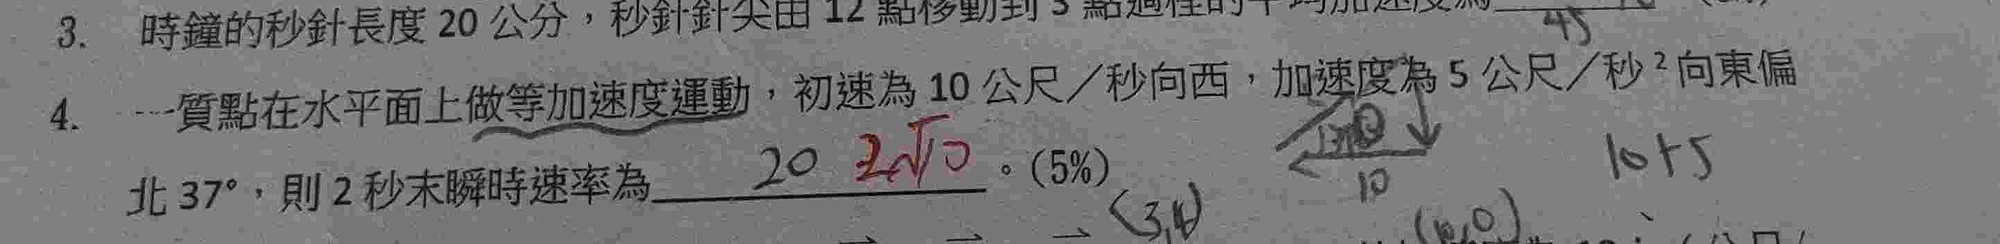 3. 時鐘的秒針長度 20 公分，秒針針尖由 12 點移動到 3 點過程的平均加速度為
45
4. 一質點在水平面上做等加速度運動，初速為 10 公尺／秒向西，加速度為 5 公尺／秒² 向東偏
北 37°，則 2 秒末瞬時速率為 20 2√10 。(5%)
10
10+5
(3,4)